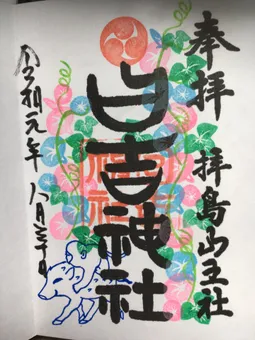 奉拝 拝島山王社
日吉神社
令和元年 八月